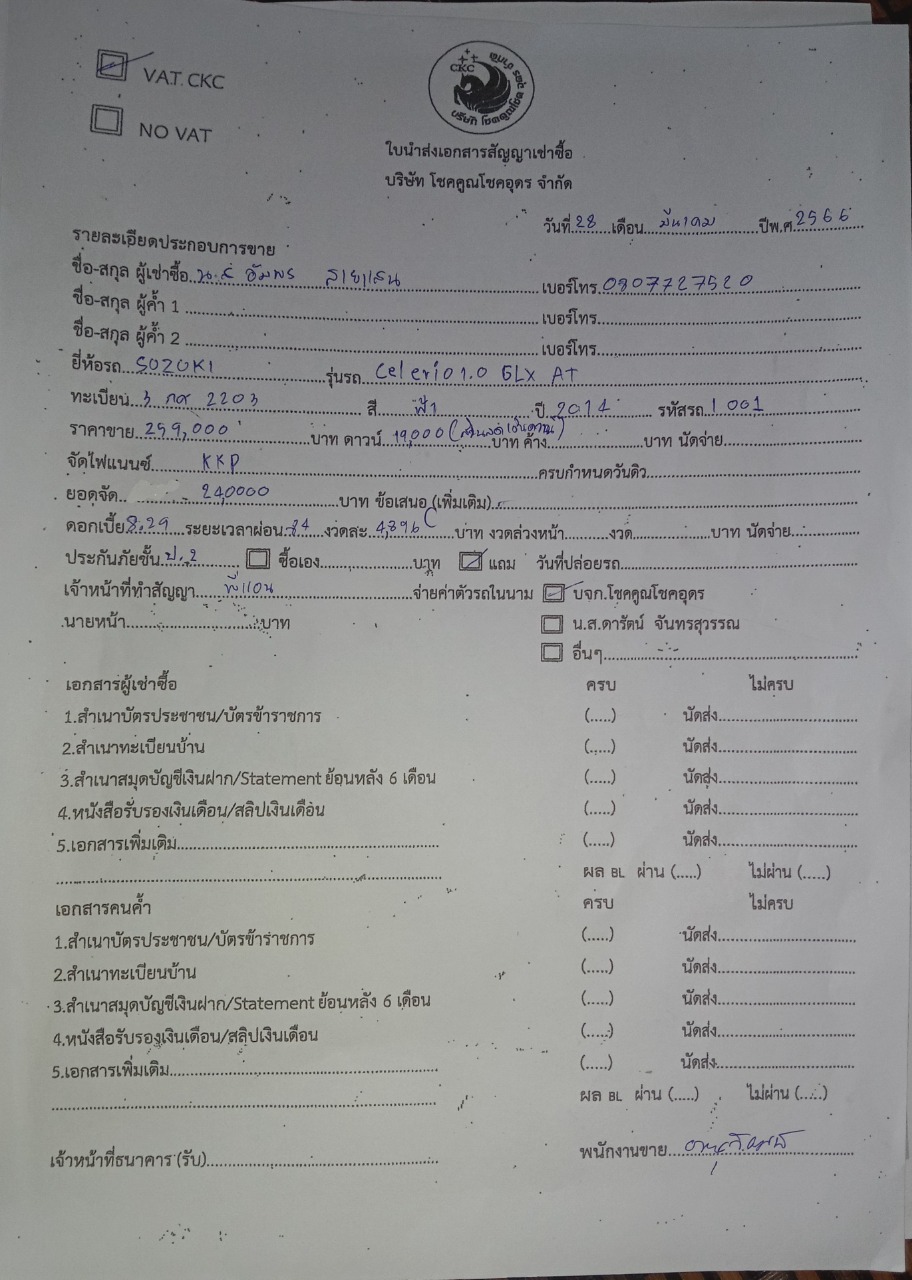 VAT.CKC
NO VAT
CKC
บริษัท โชคคูณโชค
ใบนำส่งเอกสารสัญญาเช่าซื้อ
บริษัท โชคคูณโชคอุดร จำกัด
วันที่ 28 เดือน มีนาคม ปีพ.ศ. 2566
รายละเอียดประกอบการขาย
ชื่อ-สกุล ผู้เช่าซื้อ น.ส อัมพร สายแสน เบอร์โทร 0807727520
ชื่อ-สกุล ผู้ค้ำ 1 เบอร์โทร
ชื่อ-สกุล ผู้ค้ำ 2 เบอร์โทร
ยี่ห้อรถ SUZUKI รุ่นรถ Celerio 1.0 GLX AT
ทะเบียน 3 กศ 2203 สี ฟ้า ปี 2014 รหัสรถ 1001
ราคาขาย 259,000 บาท ดาวน์ 19,000 บาท ค้าง บาท นัดจ่าย
จัดไฟแนนซ์ KKP ครบกำหนดวันดิว
ยอดจัด 240000 บาท ข้อเสนอ (เพิ่มเติม)
ดอกเบี้ย 8.29 ระยะเวลาผ่อน งวดละ 4,896 บาท งวดล่วงหน้า งวด บาท นัดจ่าย
ประกันภัยชั้น ป.2 ซื้อเอง บาท แถม วันที่ปล่อยรถ
เจ้าหน้าที่ทำสัญญา พี่แอน จ่ายค่าตัวรถในนาม บจก.โชคคูณโชคอุดร
นายหน้า บาท น.ส.ดารัตน์ จันทรสุวรรณ
อื่นๆ
เอกสารผู้เช่าซื้อ ครบ ไม่ครบ
1.สำเนาบัตรประชาชน/บัตรข้าราชการ (.....) นัดส่ง
2.สำเนาทะเบียนบ้าน (.....) นัดส่ง
3.สำเนาสมุดบัญชีเงินฝาก/Statement ย้อนหลัง 6 เดือน (.....) นัดส่ง
4.หนังสือรับรองเงินเดือน/สลิปเงินเดือน (.....) นัดส่ง
5.เอกสารเพิ่มเติม (.....) นัดส่ง
ผล BL ผ่าน (.....) ไม่ผ่าน (.....)
เอกสารคนค้ำ ครบ ไม่ครบ
1.สำเนาบัตรประชาชน/บัตรข้าราชการ (.....) นัดส่ง
2.สำเนาทะเบียนบ้าน (.....) นัดส่ง
3.สำเนาสมุดบัญชีเงินฝาก/Statement ย้อนหลัง 6 เดือน (.....) นัดส่ง
4.หนังสือรับรองเงินเดือน/สลิปเงินเดือน (.....) นัดส่ง
5.เอกสารเพิ่มเติม (.....) นัดส่ง
ผล BL ผ่าน (.....) ไม่ผ่าน (.....)
เจ้าหน้าที่ธนาคาร (รับ) พนักงานขาย